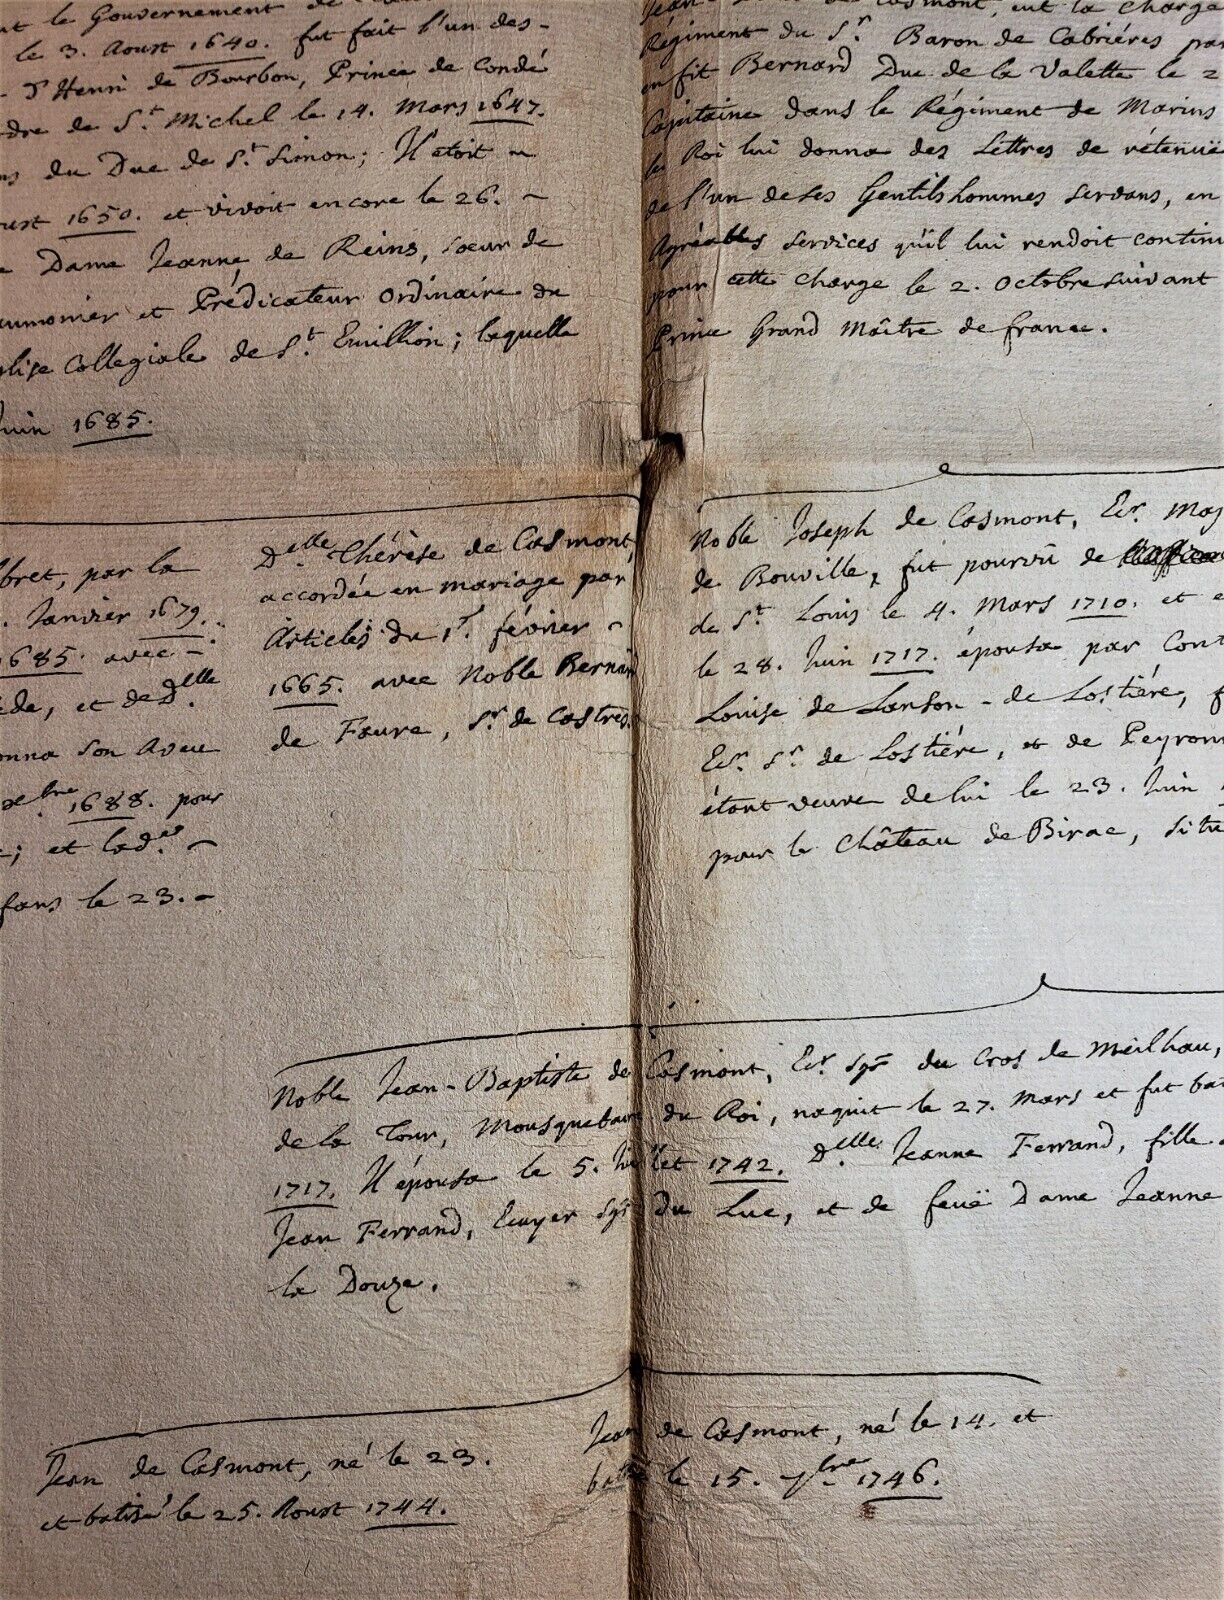 le Gouvernement de
le 3. Aoust 1640. fut fait l'un des-
d'Henri de Bourbon, Prince de Condé
dre de St. Michel le 14. Mars 1647.
du Duc de St. Simon; Il étoit
1650. et vivoit encore le 26.
Dame Jeanne de Reins, soeur de
aumonier et Prédicateur ordinaire du
Collegiale de St. Emillion; laquelle
Juin 1685.
de Casmont, eut la charge
Régiment du Sr. Baron de Cabriéres par
en fit Bernard Duc de la Valette le 2
Capitaine dans le Régiment de Marins
le Roi lui donna des Lettres de rétenuë
de l'un de ses Gentilshommes servans, en
Agréables services qu'il lui rendoit continu
pour cette charge le 2. Octobre suivant
Prince Grand Maître de france.
bret, par la
Janvier 1679.
1685. avec -
ède, et de Delle
onna son Aveu
bre 1688. pour
; et lad.es
fans le 23. -
Delle Thérèse de Casmont,
accordée en mariage par
Articles du 1r. février
1665. avec Noble Bernar
de Faure, Sr. de Castres.
Noble Joseph de Casmont, Ecr. Maj
de Bouville, fut pourvû de
de St. Louis le 4. Mars 1710. et
le 28. Juin 1717. épousa par Cont
Louise de Lanson - de Lostiére, f
Ecr. Sr. de Lostiére, et de Peyronn
étant veuve de lui le 23. Juin
pour le Château de Birac, situ
Noble Jean-Baptiste de Casmont, Ecr. Sgr du Cros de Meilhau,
de la Tour, Mousquetaire du Roi, naquit le 27. Mars et fut bat
1717. Il épousa le 5. Juillet 1742. Delle Jeanne Ferrand, fille
Jean Ferrand, Ecuyer Sgr du Luc, et de feuë Dame Jeanne
la Douze.
Jean de Casmont, né le 23.
et batisé le 25. Aoust 1744.
Jean de Casmont, né le 14. et
le 15. 7bre 1746.